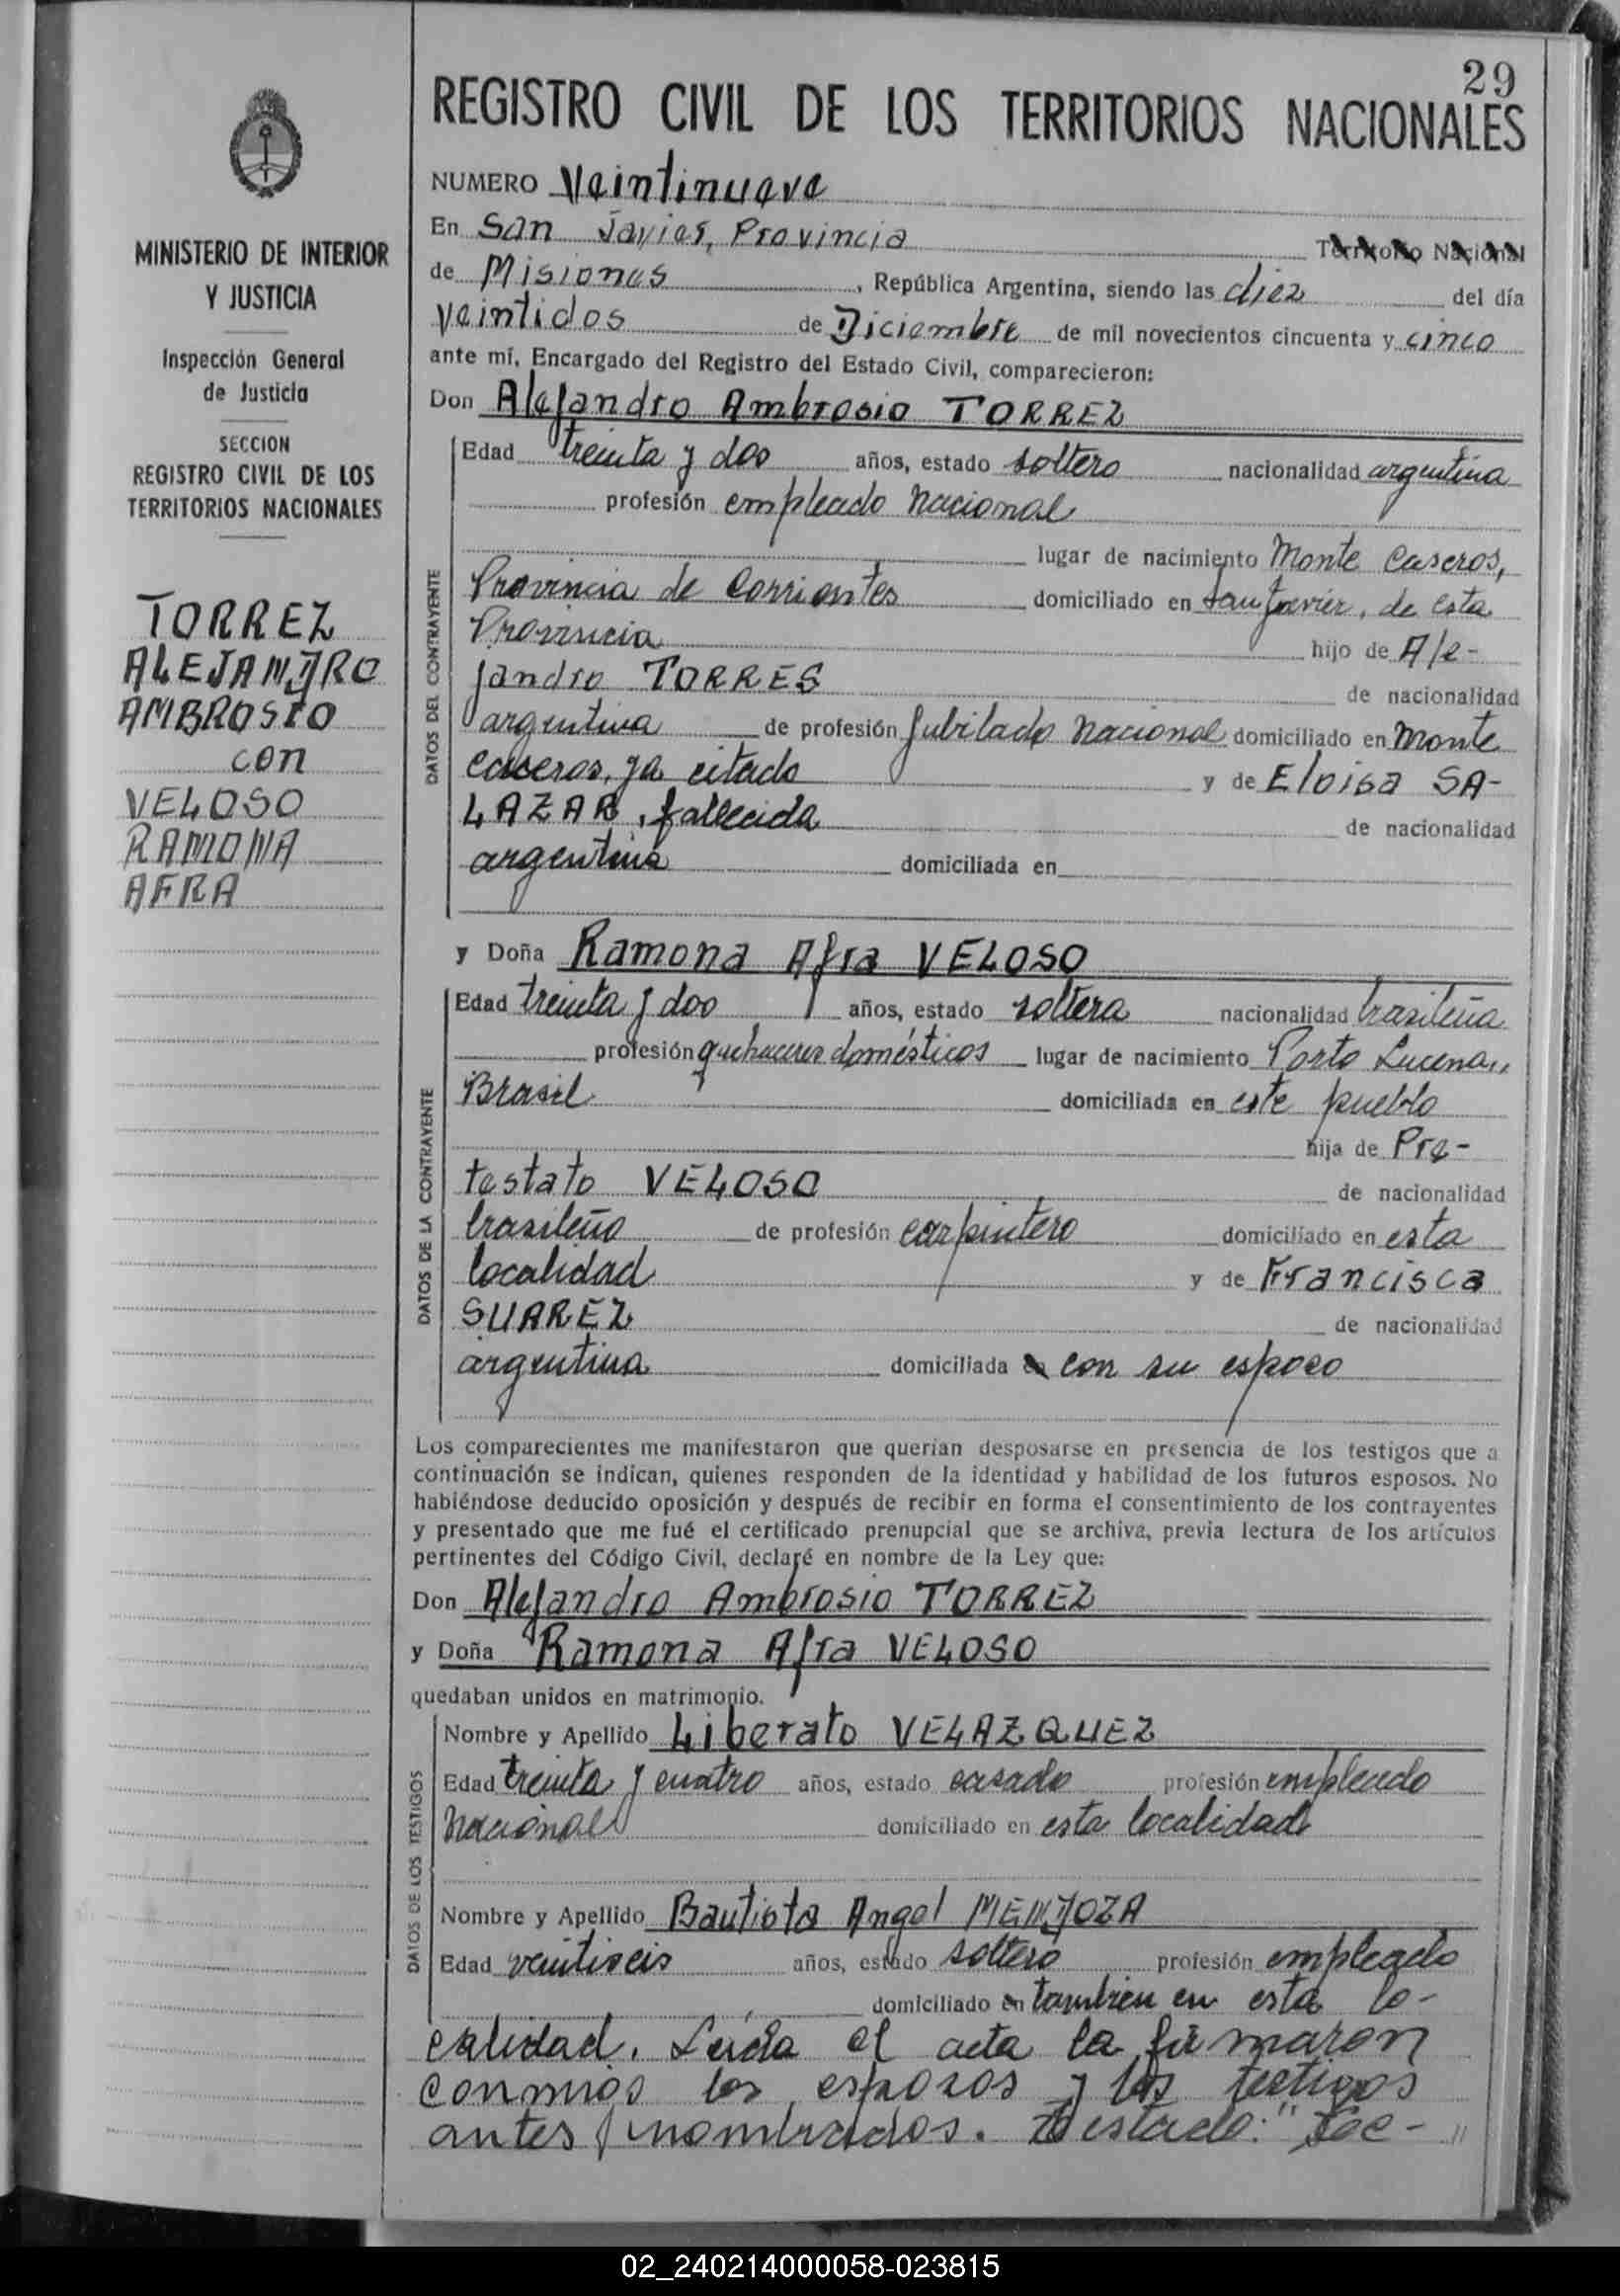 29
REGISTRO CIVIL DE LOS TERRITORIOS NACIONALES
MINISTERIO DE INTERIOR
Y JUSTICIA
Inspección General
de Justicia
SECCION
REGISTRO CIVIL DE LOS
TERRITORIOS NACIONALES
TORREZ
ALEJANDRO
AMBROSIO
con
VELOSO
RAMONA
AFRA
NUMERO Veintinueve
En San Javier, Provincia Territorio Nacional
de Misiones, República Argentina, siendo las diez del día
veintidos de Diciembre de mil novecientos cincuenta y cinco
ante mí, Encargado del Registro del Estado Civil, comparecieron:
Don Alejandro Ambrosio TORREZ
DATOS DEL CONTRAYENTE
Edad treinta y dos años, estado soltero nacionalidad argentina
profesión empleado nacional
lugar de nacimiento Monte Caseros,
Provincia de Corrientes domiciliado en San Javier, de esta
Provincia hijo de Ale-
jandro TORRES de nacionalidad
argentina de profesión jubilado nacional domiciliado en Monte
Caseros, ya citado y de Eloisa SA-
LAZAR, fallecida de nacionalidad
argentina domiciliada en
y Doña Ramona Afra VELOSO
DATOS DE LA CONTRAYENTE
Edad treinta y dos años, estado soltera nacionalidad brasileña
profesión quehaceres domésticos lugar de nacimiento Porto Lucena,
Brasil domiciliada en este pueblo
hija de Pre-
testato VELOSO de nacionalidad
brasileño de profesión carpintero domiciliado en esta
localidad y de Francisca
SUAREZ de nacionalidad
argentina domiciliada en con su esposo
Los comparecientes me manifestaron que querían desposarse en presencia de los testigos que a
continuación se indican, quienes responden de la identidad y habilidad de los futuros esposos. No
habiéndose deducido oposición y después de recibir en forma el consentimiento de los contrayentes
y presentado que me fué el certificado prenupcial que se archiva, previa lectura de los artículos
pertinentes del Código Civil, declaré en nombre de la Ley que:
Don Alejandro Ambrosio TORREZ
y Doña Ramona Afra VELOSO
quedaban unidos en matrimonio.
DATOS DE LOS TESTIGOS
Nombre y Apellido Liberato VELAZQUEZ
Edad treinta y cuatro años, estado casado profesión empleado
nacional domiciliado en esta localidad
Nombre y Apellido Bautista Angel MENDOZA
Edad veintiseis años, estado soltero profesión empleado
domiciliado en tambien en esta lo-
calidad. Leida el acta la firmaron
conmigo los esposos y los testigos
antes nombrados. Testado:
02_240214000058-023815